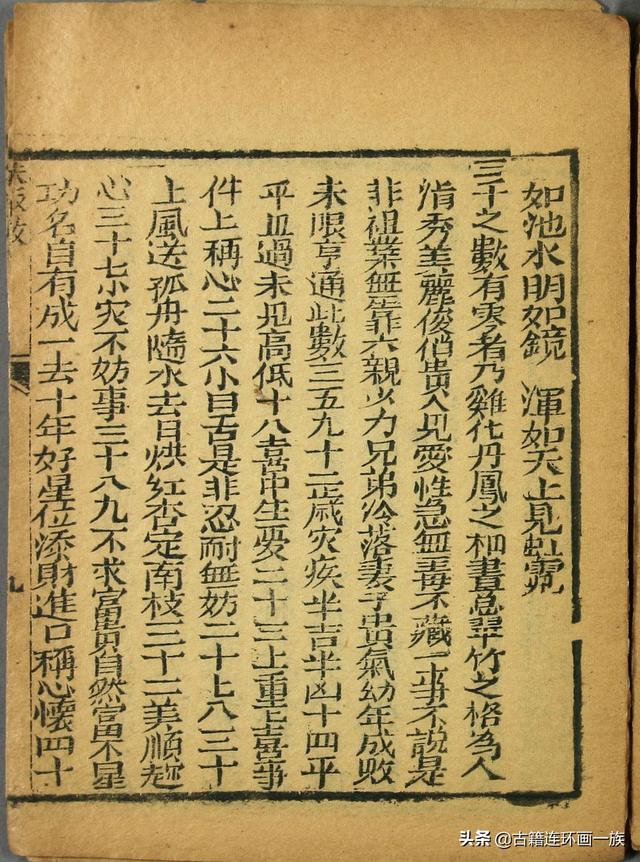 如池水明如鏡 渾如天上見虹霓
三千之數有零者乃雞化丹鳳之相晝忽翠竹之格為人
清秀美麗俊俏貴人見愛性急無毒不藏一事不說是
非祖業無靠六親少力兄弟冷落妻子貴氣幼年成敗
未限亨通此數三五九十二歲灾疾半吉半凶十四平
平且過未見高低十八喜中生憂二十三上重上喜事
件上稱心二十六小口舌是非忍耐無妨二十上八三十
上風送孤舟隨水去日烘紅杏定南枝三十二美順趂
心三十七小灾不妨事三十八九不求富貴自然當不星
功名自有成一去十年好星位添財進口稱心懷四十
九
头条 @古籍连环画一族